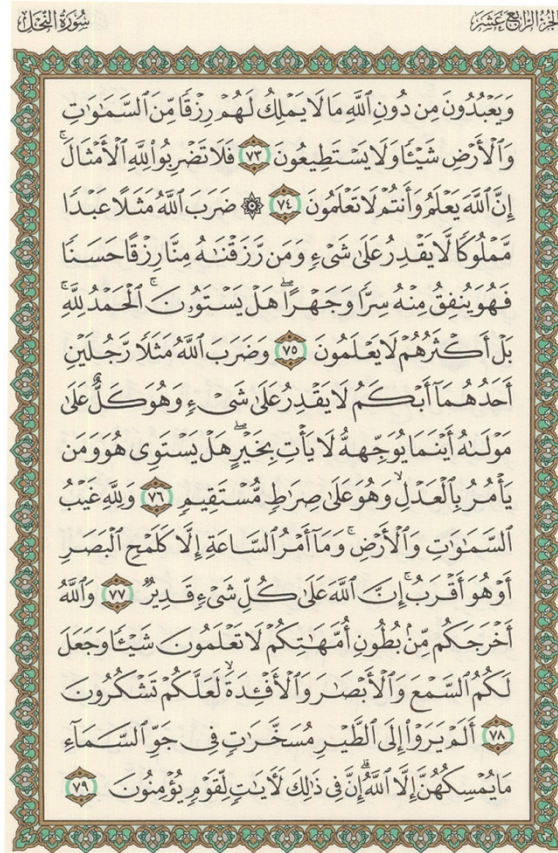 الجزء الرابع عشر
سورة النحل
وَيَعْبُدُونَ مِن دُونِ ٱللَّهِ مَا لَا يَمْلِكُ لَهُمْ رِزْقًا مِّنَ ٱلسَّمَٰوَٰتِ
وَٱلْأَرْضِ شَيْـًٔا وَلَا يَسْتَطِيعُونَ ٧٣ فَلَا تَضْرِبُوا۟ لِلَّهِ ٱلْأَمْثَالَ ۚ
إِنَّ ٱللَّهَ يَعْلَمُ وَأَنتُمْ لَا تَعْلَمُونَ ٧٤ ۞ ضَرَبَ ٱللَّهُ مَثَلًا عَبْدًا
مَّمْلُوكًا لَّا يَقْدِرُ عَلَىٰ شَىْءٍ وَمَن رَّزَقْنَٰهُ مِنَّا رِزْقًا حَسَنًا
فَهُوَ يُنفِقُ مِنْهُ سِرًّا وَجَهْرًا ۖ هَلْ يَسْتَوُۥنَ ۚ ٱلْحَمْدُ لِلَّهِ ۚ
بَلْ أَكْثَرُهُمْ لَا يَعْلَمُونَ ٧٥ وَضَرَبَ ٱللَّهُ مَثَلًا رَّجُلَيْنِ
أَحَدُهُمَآ أَبْكَمُ لَا يَقْدِرُ عَلَىٰ شَىْءٍ وَهُوَ كَلٌّ عَلَىٰ
مَوْلَىٰهُ أَيْنَمَا يُوَجِّههُّ لَا يَأْتِ بِخَيْرٍ ۖ هَلْ يَسْتَوِى هُوَ وَمَن
يَأْمُرُ بِٱلْعَدْلِ ۙ وَهُوَ عَلَىٰ صِرَٰطٍ مُّسْتَقِيمٍ ٧٦ وَلِلَّهِ غَيْبُ
ٱلسَّمَٰوَٰتِ وَٱلْأَرْضِ ۚ وَمَآ أَمْرُ ٱلسَّاعَةِ إِلَّا كَلَمْحِ ٱلْبَصَرِ
أَوْ هُوَ أَقْرَبُ ۚ إِنَّ ٱللَّهَ عَلَىٰ كُلِّ شَىْءٍ قَدِيرٌ ٧٧ وَٱللَّهُ
أَخْرَجَكُم مِّنۢ بُطُونِ أُمَّهَٰتِكُمْ لَا تَعْلَمُونَ شَيْـًٔا وَجَعَلَ
لَكُمُ ٱلسَّمْعَ وَٱلْأَبْصَٰرَ وَٱلْأَفْـِٔدَةَ ۙ لَعَلَّكُمْ تَشْكُرُونَ
٧٨ أَلَمْ يَرَوْا۟ إِلَى ٱلطَّيْرِ مُسَخَّرَٰتٍ فِى جَوِّ ٱلسَّمَآءِ
مَا يُمْسِكُهُنَّ إِلَّا ٱللَّهُ ۗ إِنَّ فِى ذَٰلِكَ لَـَٔايَٰتٍ لِّقَوْمٍ يُؤْمِنُونَ ٧٩